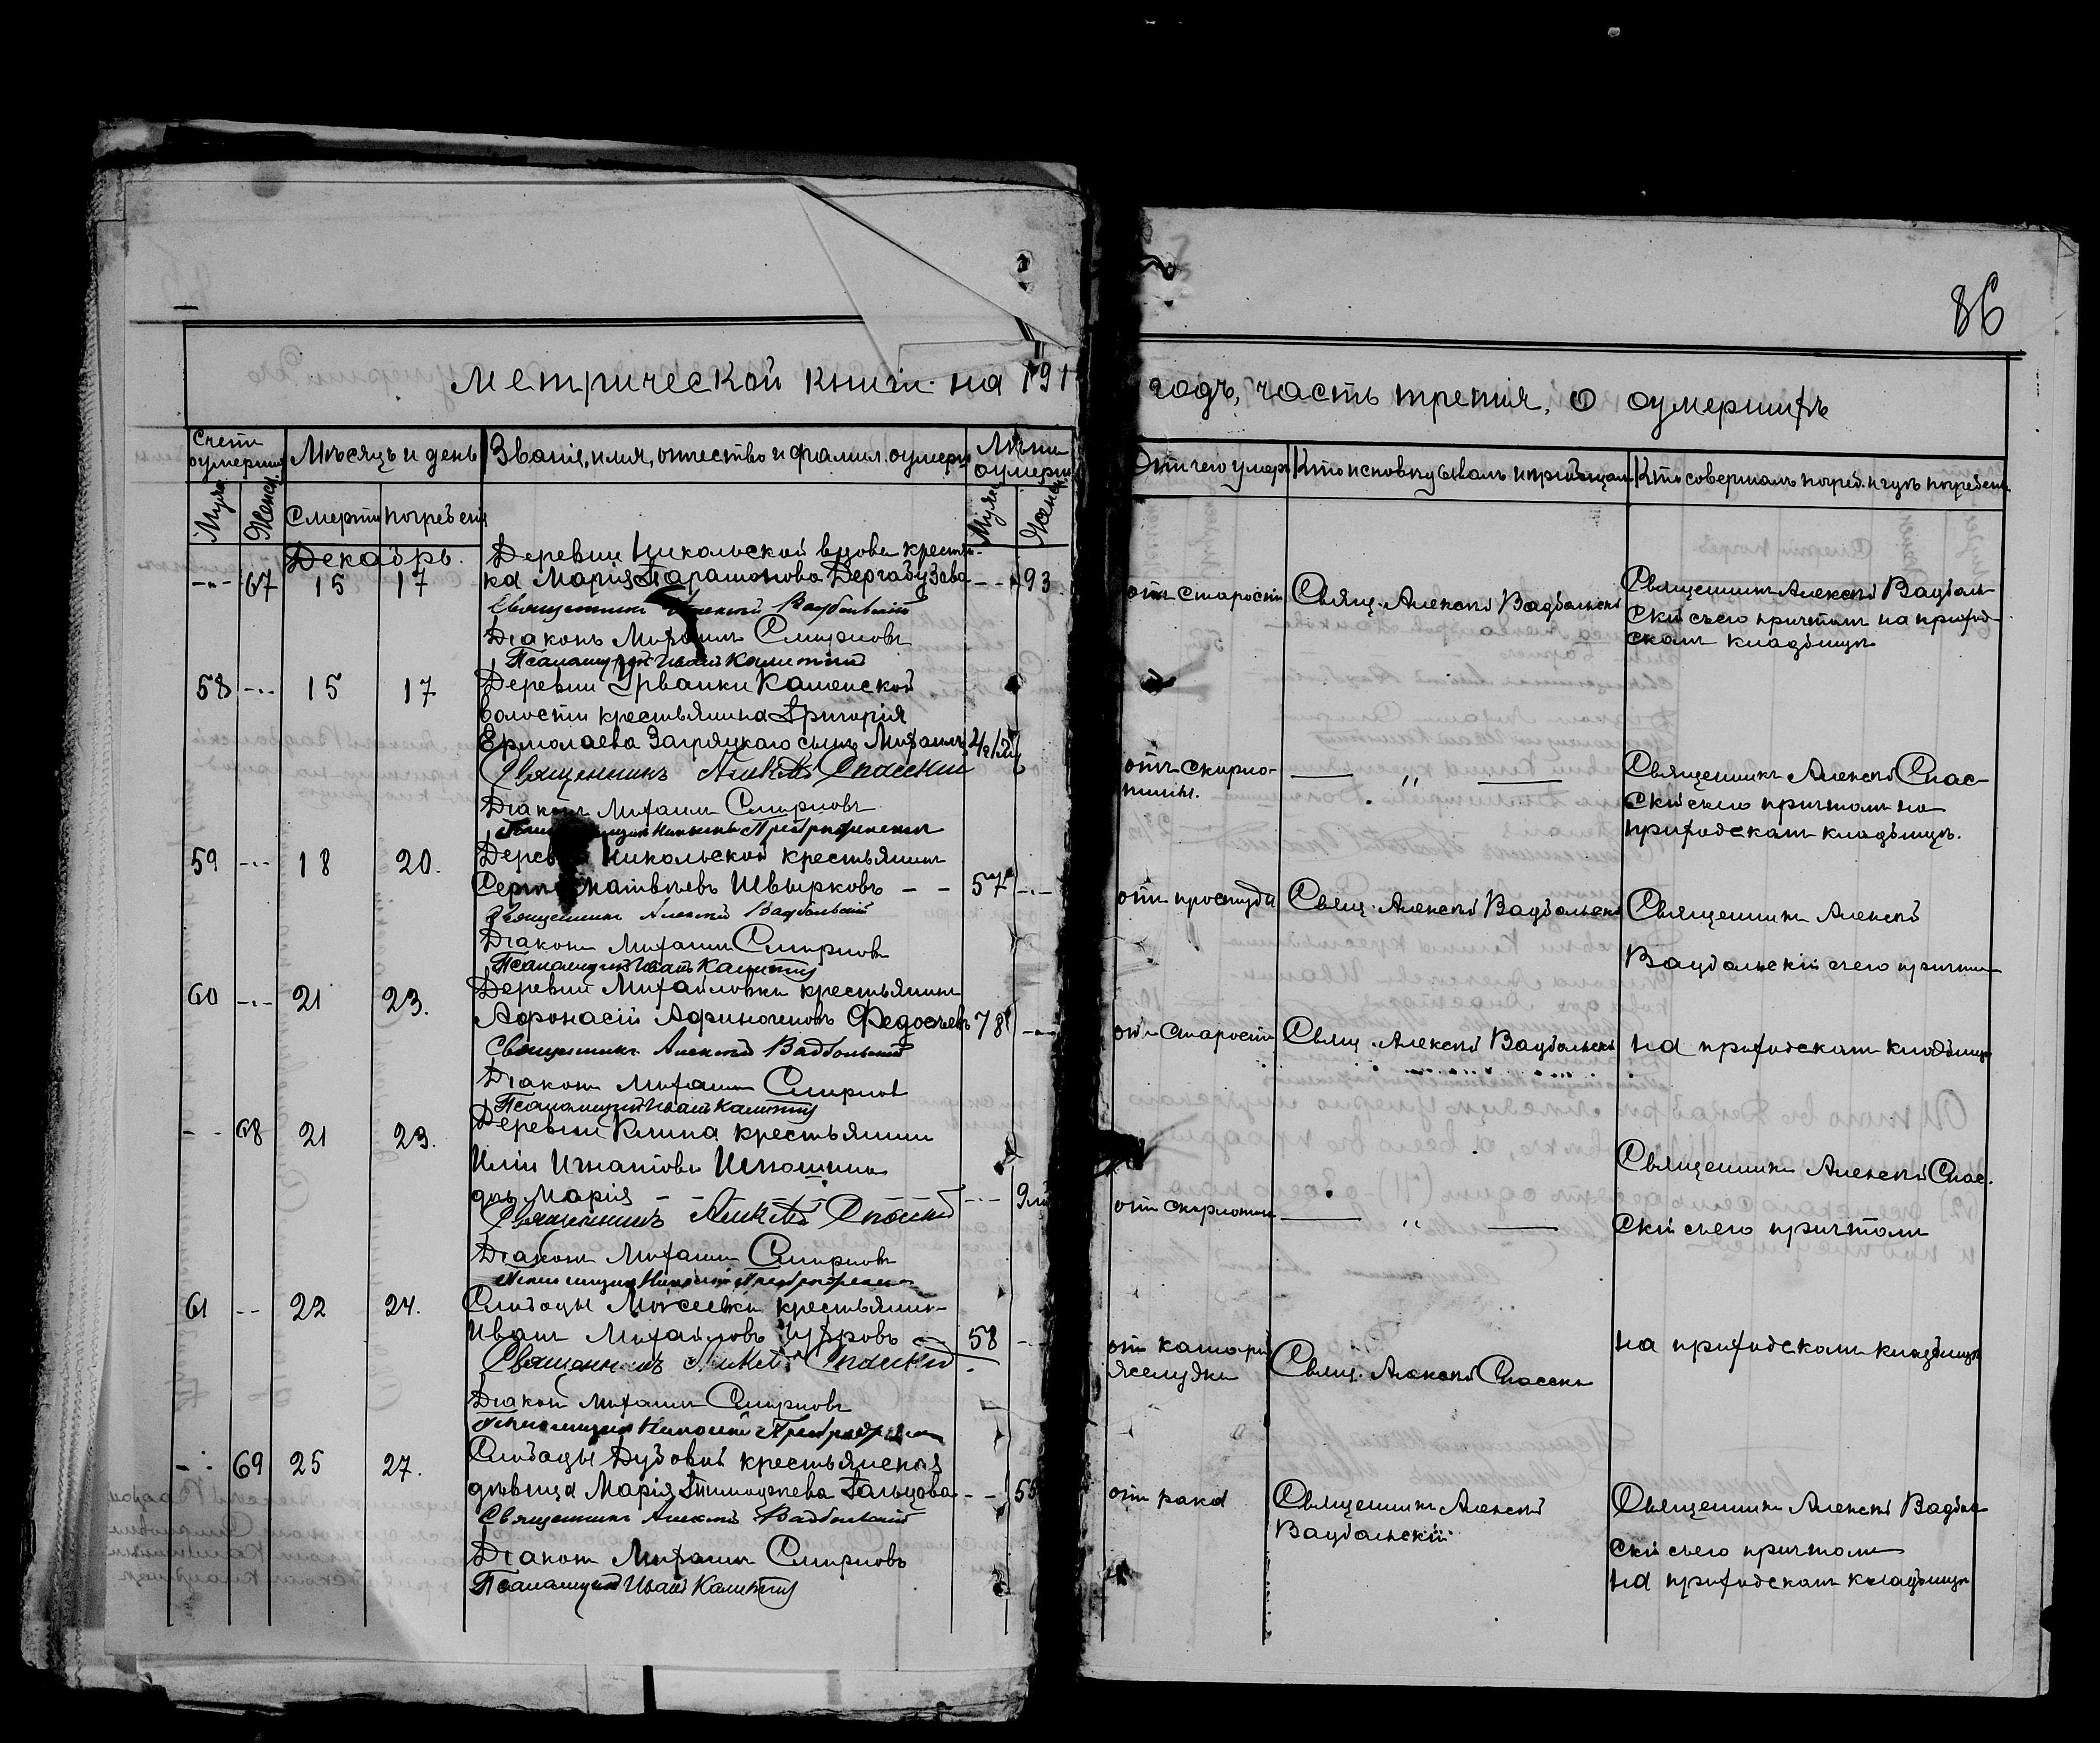 86
Метрической книги на 191
годъ, часть третія, о оумершихъ
Счетъ оумершихъ
Мѣсяцъ и день
Званіе, имя, отчество и фамил. оумерш
Лѣта оумерш
Муж.
Женск.
Смерти
погребенія
Муж.
Женск.
Отъ чего умеръ
Кто исповѣдывалъ и пріобщалъ
Кто совершалъ погреб. и гдѣ погребены
Декабрь.
Деревни Никольской вдова крестьян-
67 15 17 ка Марія Парамонова Дергабузова 93
Священникъ Алексій Вадбольскій
Діаконъ Михаилъ Смирновъ
Псаломщикъ Иванъ Калитинъ
отъ старости
Свящ. Алексѣй Вадбольскій
Священникъ Алексѣй Вадболь-
скій съ его причтомъ на приход-
скомъ кладбищѣ
58 15 17 Деревни Урванки Каменской
волости крестьянина Григорія
Ермолаева Загряцкаго сынъ Михаилъ
Священникъ Алексѣй Спасскій
Діаконъ Михаилъ Смирновъ
отъ скарла-
тины.
— „ —
Священникъ Алексѣй Спас-
скій съ его причтомъ на
приходскомъ кладбищѣ.
59 18 20. Никольской крестьянинъ
Матвѣевъ Швырковъ 57
Священникъ Алексій Вадбольскій
Діаконъ Михаилъ Смирновъ
Псаломщикъ Иванъ Калитинъ
отъ простуды
Свящ. Алексѣй Вадбольскій
Священникъ Алексѣй
Вадбольскій съ его причтом
60 21 23. Деревни Михаиловки крестьянинъ
Афонасій Афиногеновъ Федосѣевъ 78
Священникъ Алексій Вадбольскій
Діаконъ Михаилъ Смирновъ
Псаломщикъ Иванъ Калитинъ
отъ старости
Свящ. Алексѣй Вадбольскій
на приходскомъ кладбищѣ
68 21 23. Деревни Клина крестьянина
Иліи Игнатова Илюшина
дчь Марія
Священникъ Алексѣй Спасскій
Діаконъ Михаилъ Смирновъ
отъ скарлатин
— „ —
Священникъ Алексѣй Спас.
скій съ его причтомъ
61 22 24. Слободы Моисеевки крестьянинъ
Иванъ Михайловъ 58
Священникъ Алексѣй Спасскій
Діаконъ Михаилъ Смирновъ
отъ катарра
желудка
Свящ. Алексѣй Спасскій
на приходскомъ кладбищѣ
69 25 27. Слободы Дубовой крестьянская
дѣвица Марія Тимофѣева Гальцова 55
Священникъ Алексій Вадбольскій
Діаконъ Михаилъ Смирновъ
Псаломщикъ Иванъ Калитинъ
отъ рака
Священникъ Алексѣй
Вадбольскій
Священникъ Алексѣй Вадболь
скій съ его причтомъ
на приходскомъ кладбищѣ